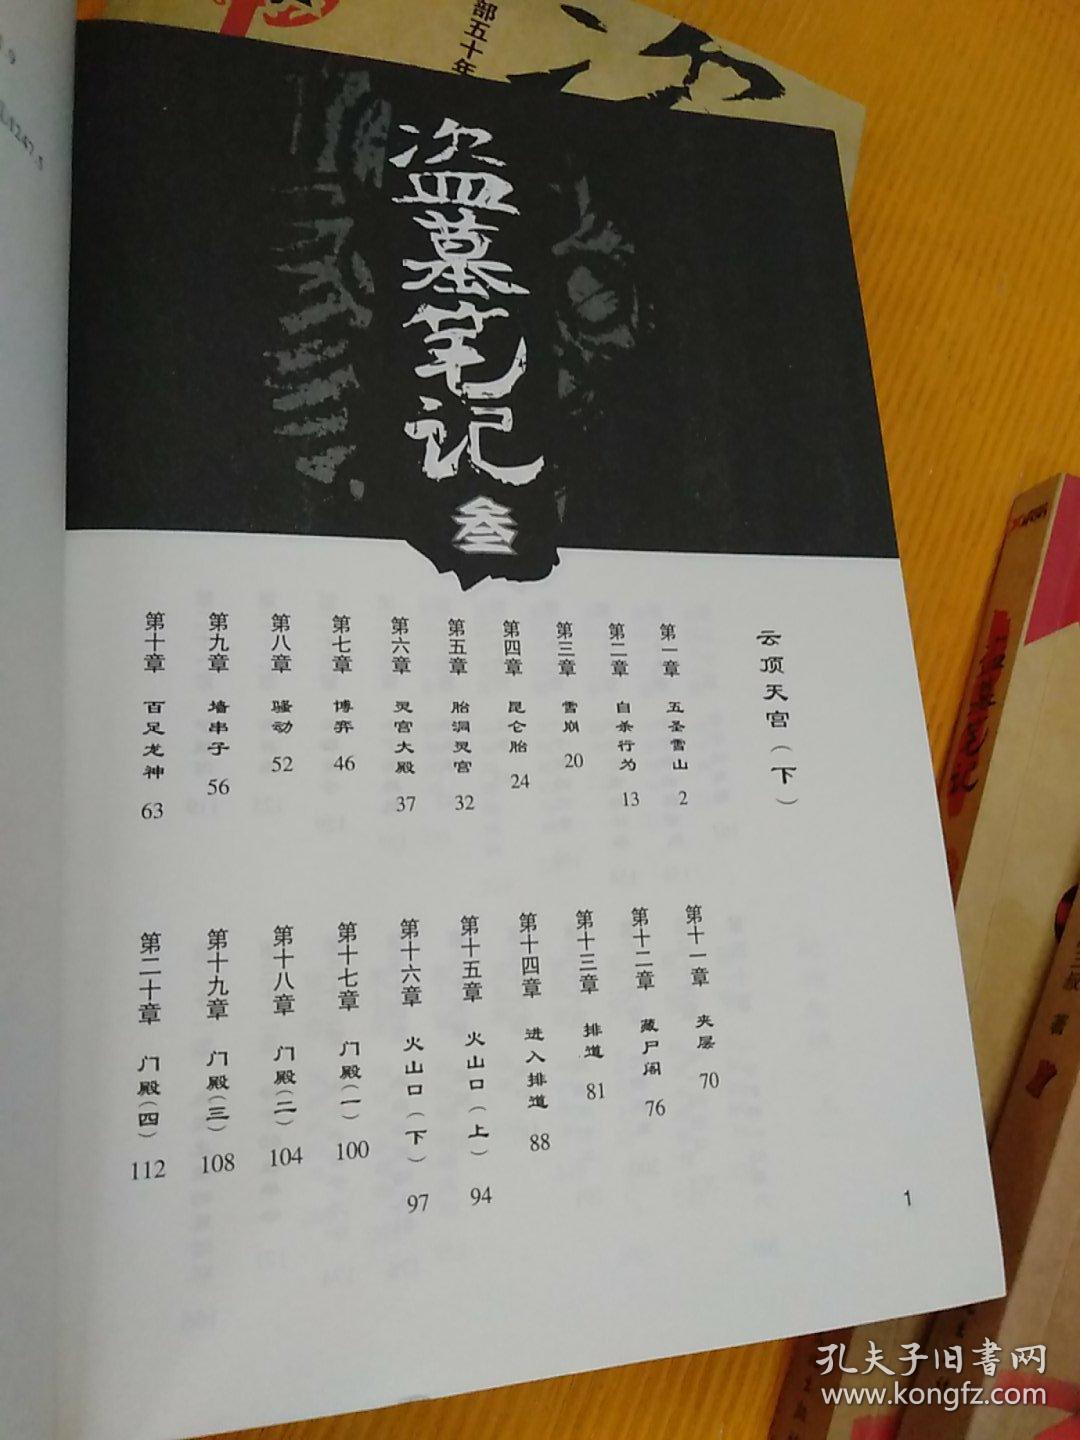 部五十年
L1247.5
盗墓笔记
叁
云顶天宫（下）
第一章 五圣雪山 2
第二章 自杀行为 13
第三章 雪崩 20
第四章 昆仑胎 24
第五章 胎洞灵宫 32
第六章 灵宫大殿 37
第七章 博弈 46
第八章 骚动 52
第九章 墙串子 56
第十章 百足龙神 63
第十一章 夹层 70
第十二章 藏尸阁 76
第十三章 排道 81
第十四章 进入排道 88
第十五章 火山口（上） 94
第十六章 火山口（下） 97
第十七章 门殿（一） 100
第十八章 门殿（二） 104
第十九章 门殿（三） 108
第二十章 门殿（四） 112
1
笔记
三叔 著
孔夫子旧書网
www.kongfz.com